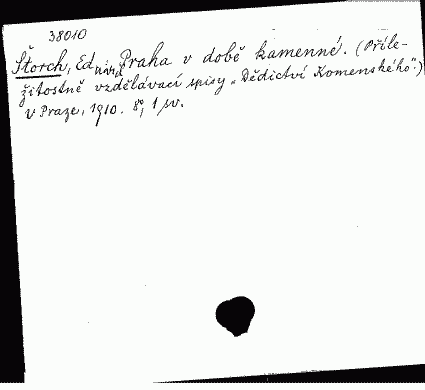 38010
Štorch, Eduard Praha v době kamenné. (Příle-
žitostně vzdělávací spisy „Dědictví Komenského“.)
v Praze, 1910. 8°, 1 sv.